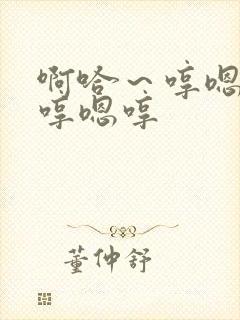 啊哈～哼嗯
哼嗯哼
董仲舒